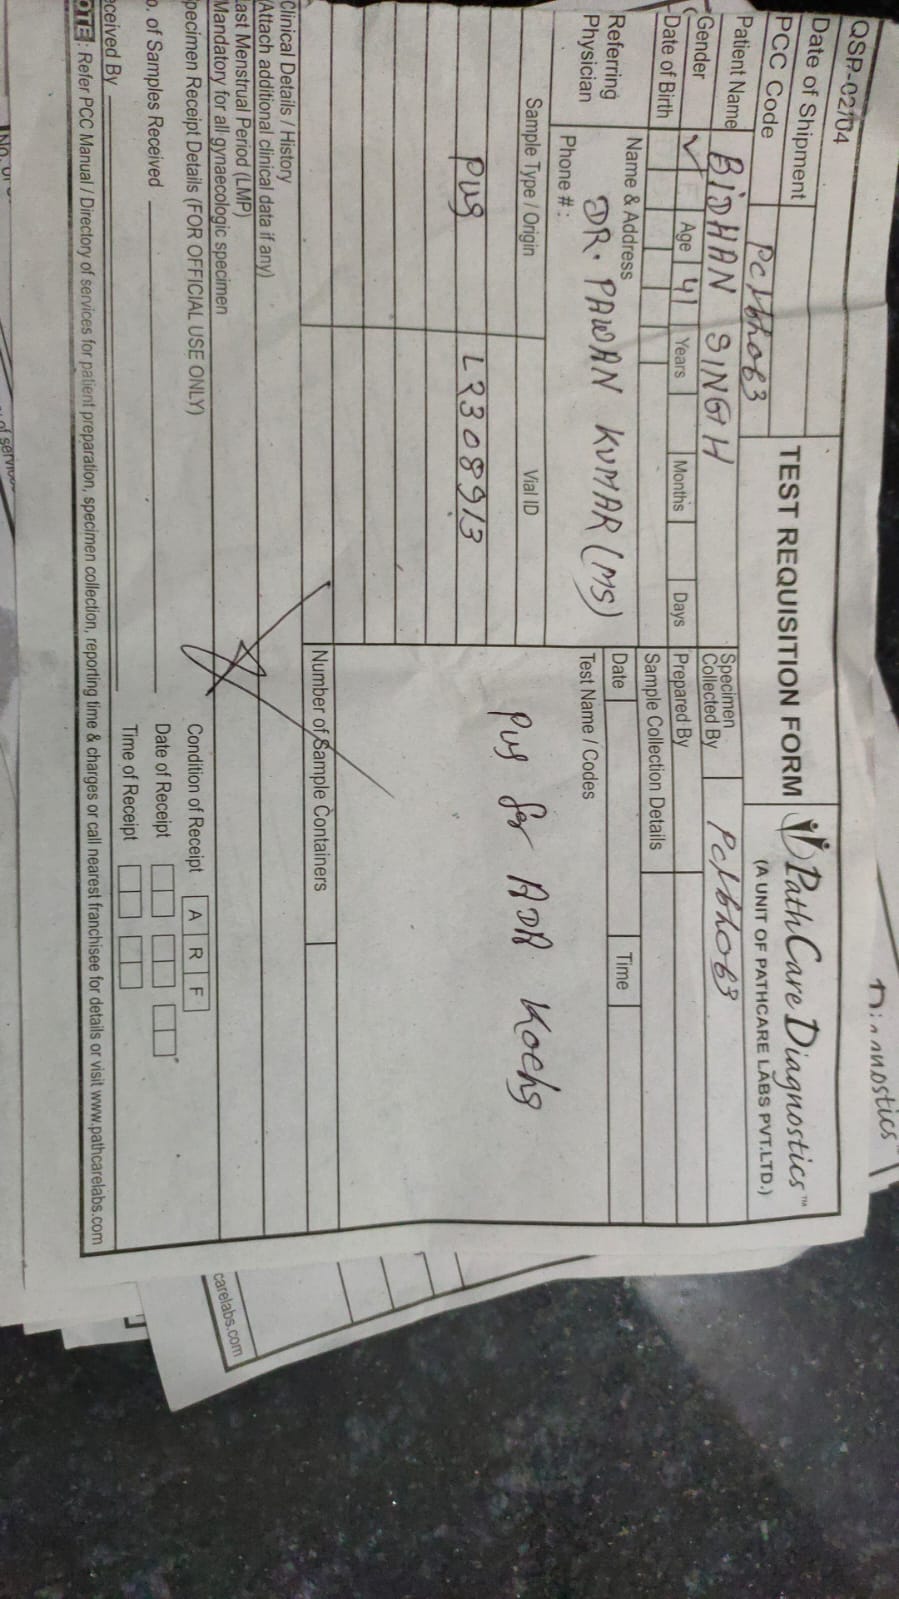 QSP-02/04
Date of Shipment
PCC Code
TEST REQUISITION FORM
PathCare Diagnostics™
(A UNIT OF PATHCARE LABS PVT.LTD.)
Patient Name BIDHAN SINGH
Specimen Collected By
Gender
Age 41 Years Months Days
Prepared By
Date of Birth
Sample Collection Details
Referring Physician
Name & Address DR. PAWAN KUMAR (MS)
Phone # :
Date Time
Test Name / Codes
Sample Type / Origin Vial ID
Pus L3308913
Pus for ADA Kochs
Number of Sample Containers
Clinical Details / History
(Attach additional clinical data if any)
Last Menstrual Period (LMP)
Mandatory for all gynaecologic specimen
pecimen Receipt Details (FOR OFFICIAL USE ONLY)
Condition of Receipt A R F
o. of Samples Received
Date of Receipt
eceived By
Time of Receipt
OTE : Refer PCC Manual / Directory of services for patient preparation, specimen collection, reporting time & charges or call nearest franchisee for details or visit www.pathcarelabs.com
carelabs.com